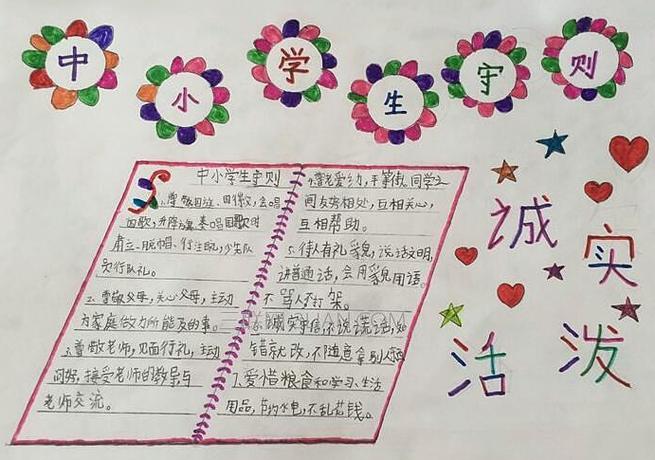 中小学生守则
中小学生守则
1.尊敬国旗、国徽,会唱
国歌,升降旗、奏唱国歌时
肃立、脱帽、行注目礼,少先队
员行队礼。
2.尊敬父母,关心父母,主动
为家庭做力所能及的事。
3.尊敬老师,见面行礼,主动
问好,接受老师的教导与
老师交流。
4.尊老爱幼,平等待人,同学之
间友好相处,互相关心,
互相帮助。
5.待人有礼貌,说话文明,
讲普通话,会用礼貌用语。
不骂人,不打架。
6.诚实守信,不说谎话,知
错就改,不随意拿别人
7.爱惜粮食和学习、生活
用品,节约水电,不乱花钱。
诚实
活泼